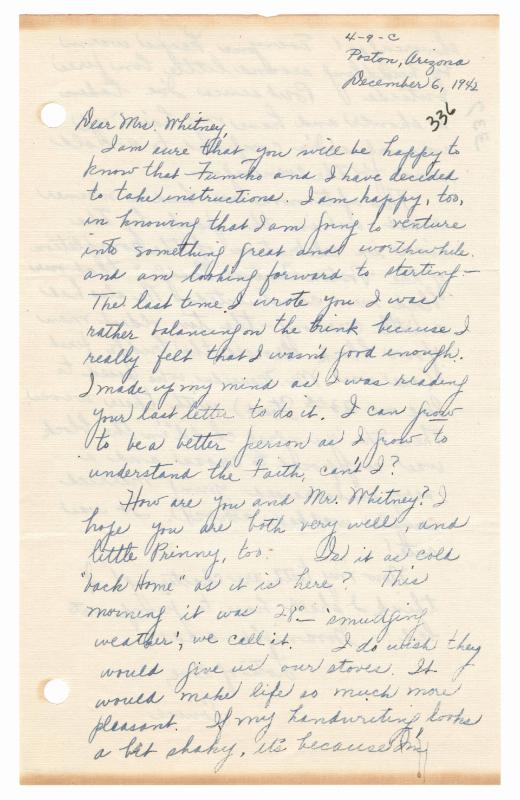 4-9-C
Poston, Arizona
December 6, 1942
336
Dear Mrs. Whitney,
I am sure that you will be happy to
know that Fumiko and I have decided
to take instructions. I am happy, too,
in knowing that I am going to venture
into something great and worthwhile.
and am looking forward to starting—
The last time I wrote you I was
rather balancing on the brink because I
really felt that I wasn't good enough.
I made up my mind as I was reading
your last letter to do it. I can grow
to be a better person as I grow to
understand the Faith, can't I?
How are you and Mr. Whitney? I
hope you are both very well, and
little Prinny, too. Is it as cold
"back Home" as it is here? This
morning it was 28° - 'smudging
weather', we call it. I do wish they
would give us our stoves. It
would make life so much more
pleasant. If my handwriting looks
a bit shaky, it's because I'm